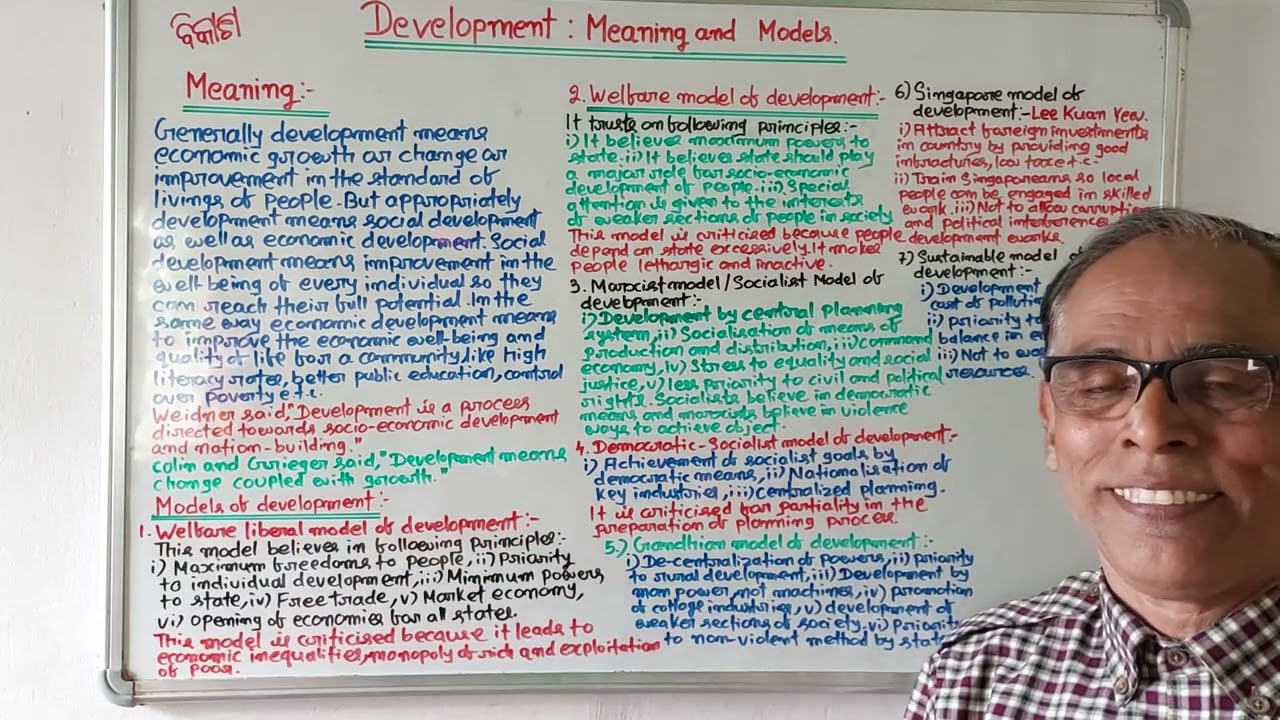 ବିକାଶ
Development : Meaning and Models.
Meaning:-
Generally development means
economic growth or change or
improvement in the standard of
livings of people. But appropriately
development means social development
as well as economic development. Social
development means improvement in the
well being of every individual so they
can reach their full potential. In the
same way economic development means
to improve the economic well-being and
quality of life for a community, like high
literacy rates, better public education, control
over poverty e.t.c.
Weidner said, "Development is a process
directed towards socio-economic development
and nation-building."
Colin and Grieger said, "Development means
change coupled with growth."
Models of development:-
1. Welfare liberal model of development:-
This model believes in following principles:-
i) Maximum freedoms to people, ii) Priority
to individual development, iii) Minimum powers
to state, iv) Free trade, v) Market economy,
vi) Opening of economies for all states.
This model is criticised because it leads to
economic inequalities, monopoly of rich and exploitation
of poor.
2. Welfare model of development:-
It trusts on following principles:-
i) It believes maximum powers to
state. ii) It believes state should play
a major role for socio-economic
development of people. iii) Special
attention is given to the interests
of weaker sections of people in society
This model is criticised because people
depend on state excessively. It makes
people lethargic and inactive.
3. Marxist model / Socialist Model of
development:-
i) Development by central planning
system, ii) Socialisation of means of
production and distribution, iii) command
economy, iv) Stress to equality and social
justice, v) less priority to civil and political
rights. Socialists believe in democratic
means and marxists believe in violence
ways to achieve object.
4. Democratic-Socialist model of development:-
i) Achievement of socialist goals by
democratic means, ii) Nationalisation of
key industries, iii) centralized planning.
It is criticised for partiality in the
preparation of planning process.
5.) Gandhian model of development:-
i) De-centralization of powers, ii) priority
to rural development, iii) Development by
man power, not machines, iv) promotion
of cottage industries, v) development of
weaker sections of society. vi) Priority
to non-violent method by state
6) Singapore model of
development:- Lee Kuan Yew.
i) Attract foreign investments
in country by providing good
low tax e.t.c.
ii) Train Singaporeans so local
people can be engaged in skilled
work. iii) Not to allow corruption
and political interferences
development works.
7) Sustainable model
development:-
i) Development
cost of
ii) priority to
balance in
iii) Not to
resources.